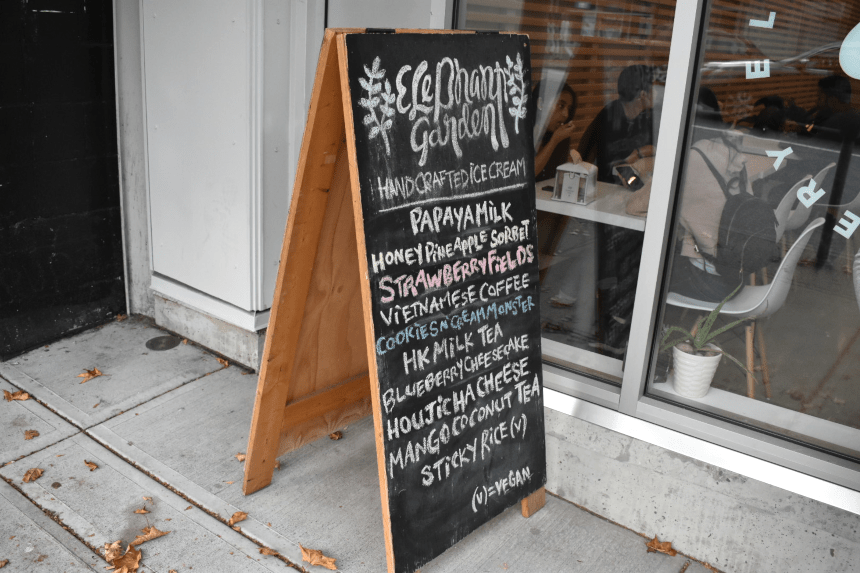 Elephant
Garden
HANDCRAFTED ICE CREAM
PAPAYA MILK
HONEY PINEAPPLE SORBET
STRAWBERRY FIELDS
VIETNAMESE COFFEE
COOKIES N CREAM MONSTER
HK MILK TEA
BLUEBERRY CHEESECAKE
HOUJICHA CHEESE
MANGO COCONUT TEA
STICKY RICE (V)
(V)=VEGAN